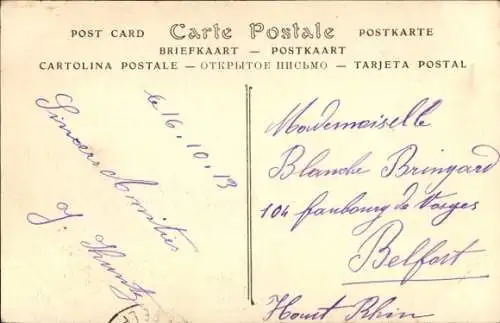 POST CARD Carte Postale POSTKARTE
BRIEFKAART — POSTKAART
CARTOLINA POSTALE — ОТКРЫТОЕ ПІСЬМО — TARJETA POSTAL
le 16.10.13
Sincères Amitiés
J.
Mademoiselle
Blanche Bringard
104 faubourg de Vosges
Belfort
Haut Rhin